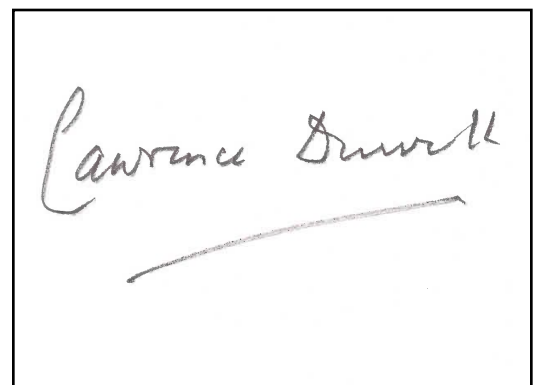 Lawrence Durrell